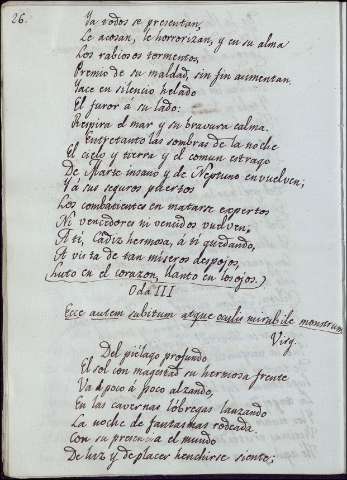 26.
Ya todos se presentan,
Le acosan, le horrorizan, y en su alma
Los rabiosos tormentos,
Premio de su maldad, sin fin aumentan.
Yace en silencio helado
El furor á su lado:
Respira el mar y su bravura calma.
Entretanto las sombras de la noche
El cielo y tierra y el comun estrago
De Marte insano y de Neptuno envuelven;
Y á sus seguros puertos
Los combatientes en matarse expertos
Ni vencedores ni vencidos vuelven,
A ti, Cádiz hermosa, á ti quedando,
A vista de tan míseros despojos,
Luto en el corazon, llanto en los ojos.)
Oda III
Ecce autem subitum atque oculis mirabile monstrum
Virg.
Del piélago profundo
El sol con magestad su hermosa frente
Va poco á poco alzando,
En las cavernas lóbregas lanzando
La noche de fantasmas rodeada.
Con su presencia el mundo
De luz y de placer henchirse siente;